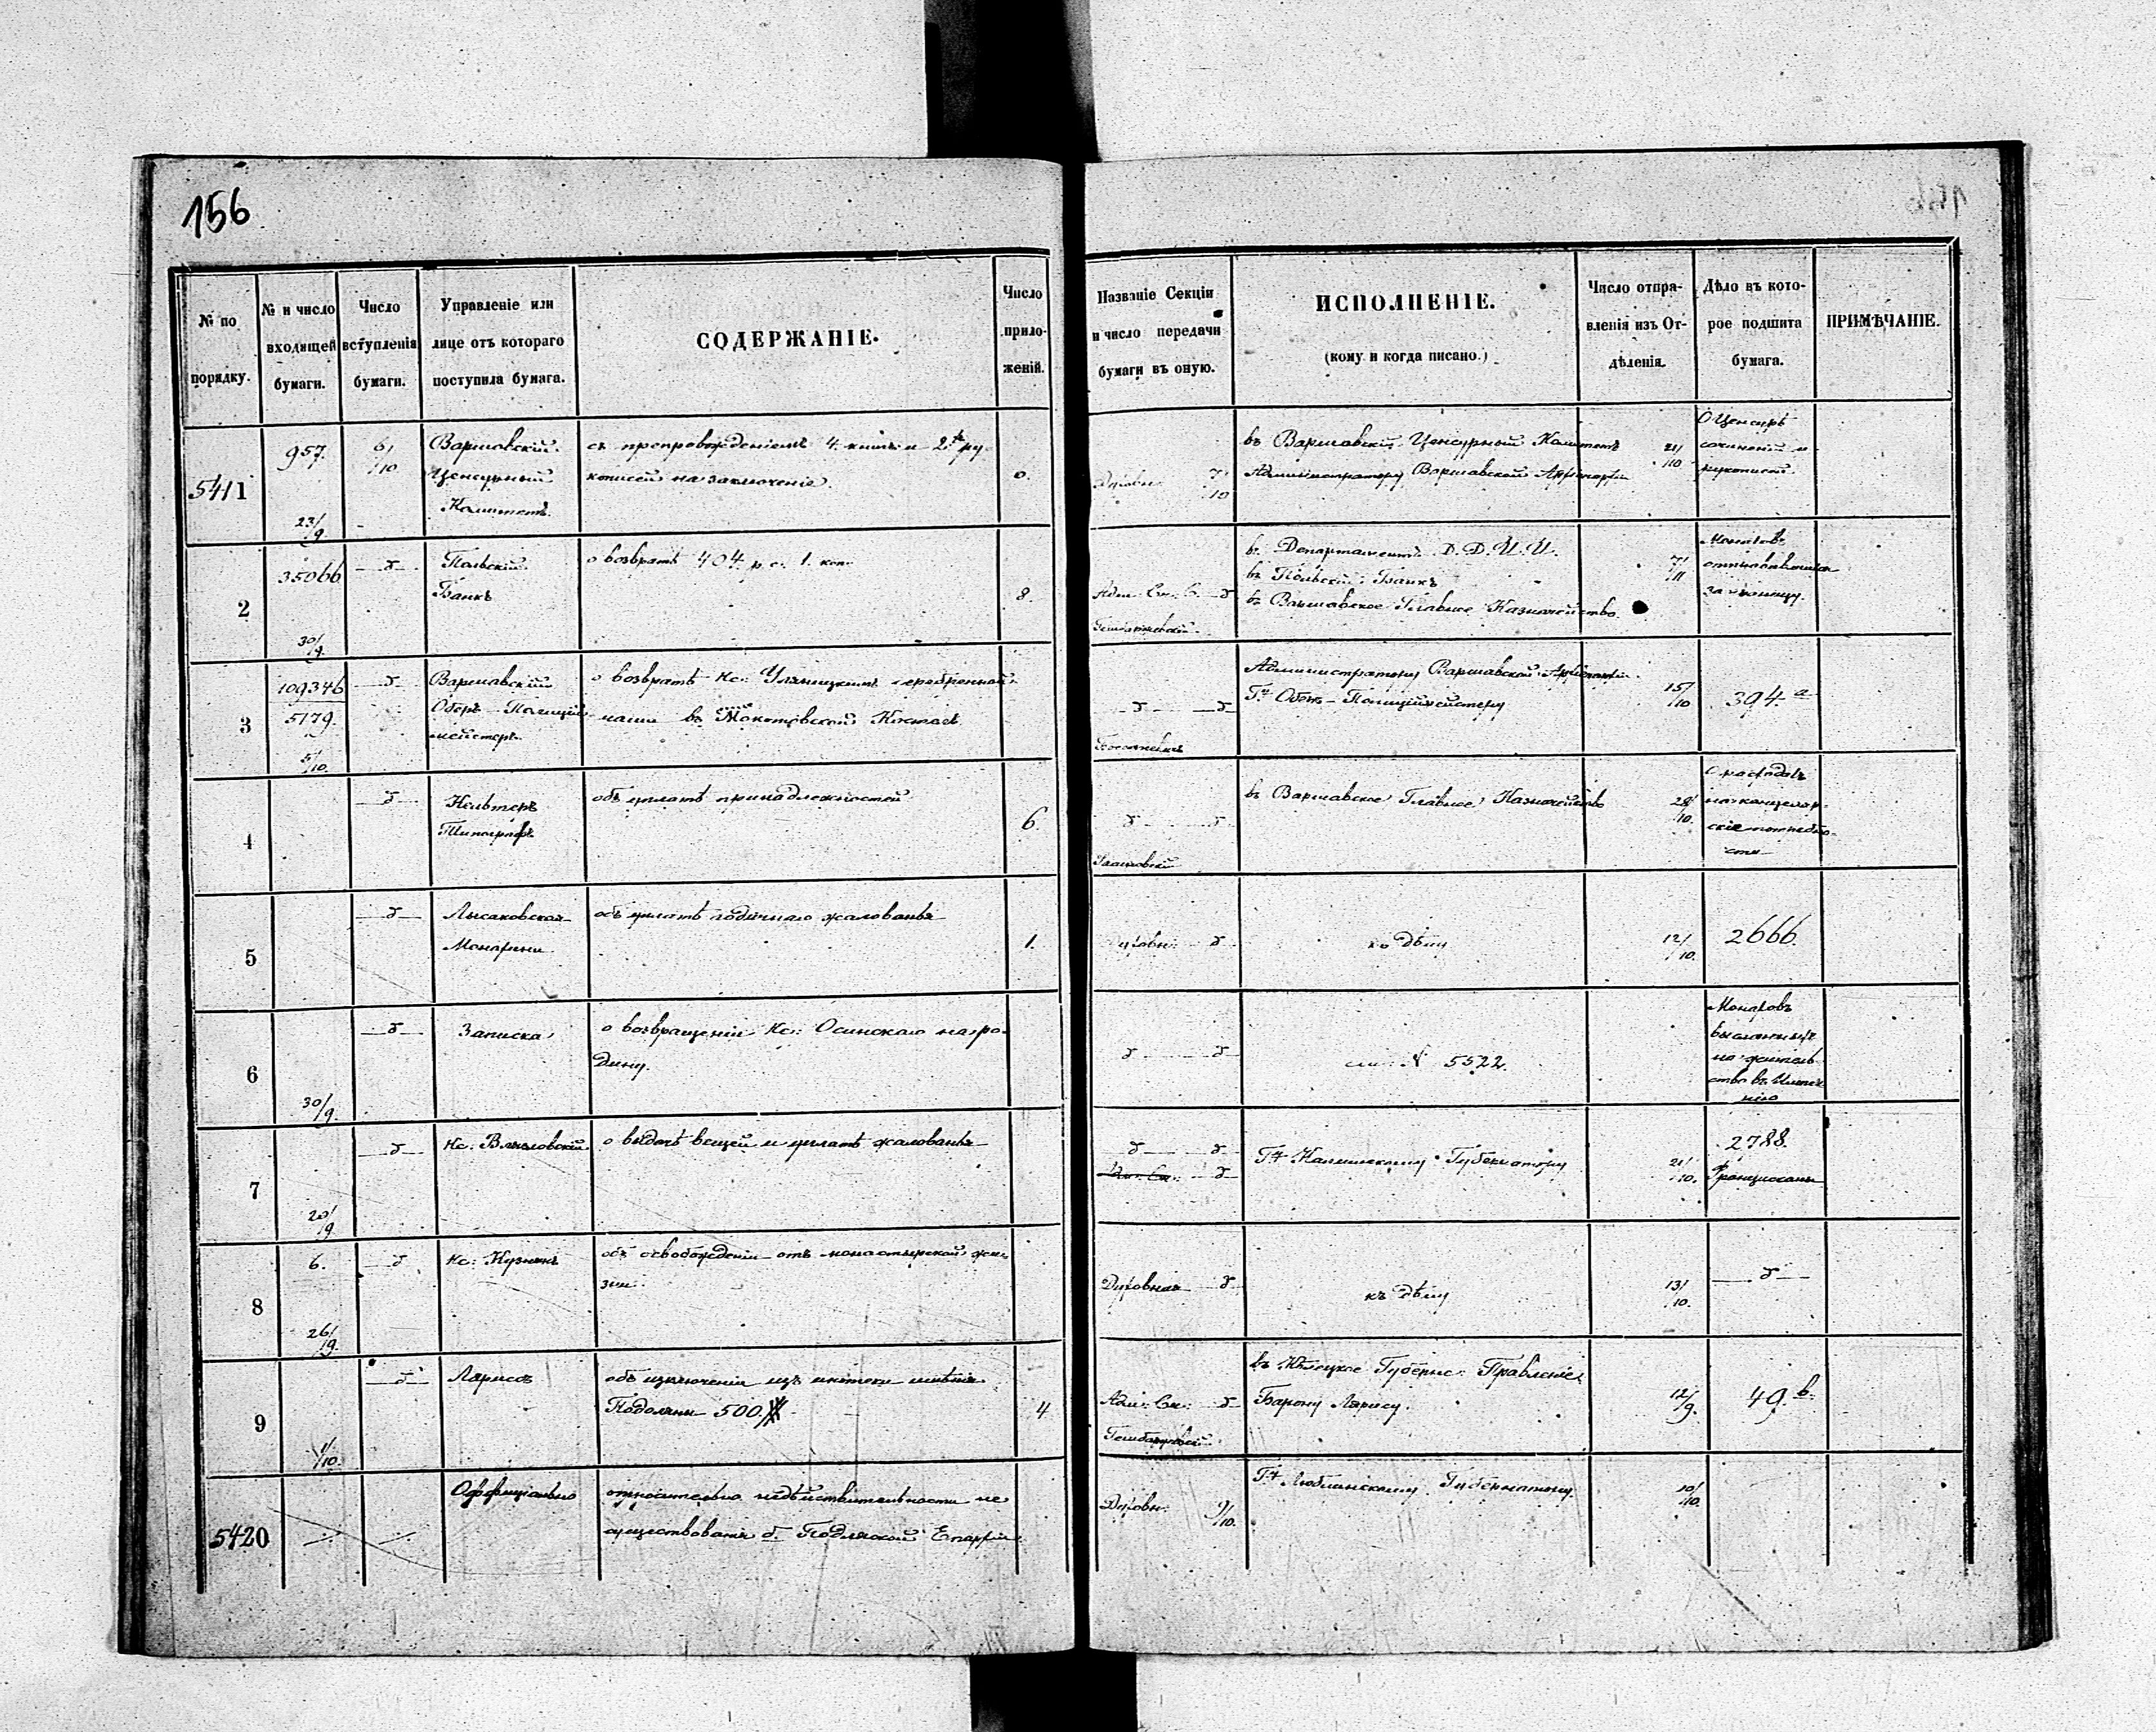 156
№ по порядку.
№ и число входящей бумаги.
Число вступленія бумаги.
Управленіе или лице отъ котораго поступила бумага.
СОДЕРЖАНІЕ.
Число приложеній.
Названіе Секціи и число передачи бумаги въ оную.
ИСПОЛНЕНІЕ.
(кому и когда писано.)
Число отправленія изъ Отдѣленія.
Дѣло въ которое подшита бумага.
ПРИМѢЧАНІЕ.
5411
957.
23/9
6/10
Варшавскій
Ценсурный
Комитетъ.
съ препровожденіемъ 4. книгъ и 2хъ ру
кописей на заключеніе.
0.
Духовн. 7/10
въ Варшавскій Ценсурный Комитетъ
Администратору Варшавской Архіепархіи
21/10
О Ценсурѣ
сочиненій и
рукописей
2
35066
30/9.
Польскій
Банкъ
о возвратѣ 404 р. с. 1. коп.
8.
въ Департаментъ Д. Д. И. И.
въ Польскій Банкъ
въ Варшавское Главное Казначейство
7/11
за границу.
3
109346
5179.
5/10.
Варшавскій
Оберъ-Полицій
мейстеръ
о возвратѣ Кс: серебренной
чаши въ Мокотовской
Администратору Варшавской Архіепархіи
Гну Оберъ-Полиціймейстеру
15/10
394. a
4
Типографъ
объ уплатѣ принадлежностей
6.
въ Варшавское Главное Казначейство
28/10.
О расходахъ
на канцеляр-
скіе потребно-
сти
5
Лысаковская
Монахини
объ уплатѣ годичнаго жалованья
1.
Духовн:
къ дѣлу
12/10.
2666.
6
30/9.
Записка
о возвращеніи Кс: Осинскаго на ро-
дину.
см. № 5522.
Монаховъ
высланныхъ
на житель
ство въ Импе
рію
7
20/9
Кс.
о выдачѣ вещей и уплатѣ жалованья
Гну Калишскому Губернатору
21/10.
2788.
Францискане
8
6.
26/9.
Кс:
объ освобожденіи отъ монастырской жи-
зни.
Духовная
къ дѣлу
13/10.
9
1/10.
Ларисъ
объ изключеніи изъ ипотеки имѣнія
Подоляны 500.
4
Адм: Сп:
въ Кѣлецкое Губернс: Правленіе
Барону Ларису.
12/9.
49. b.
5420
Оффиціально
относительно недѣйствительности не
существованія б. Подляской Епархіи
Духовн. 9/10.
Гну Люблинскому Губернатору.
10/10.